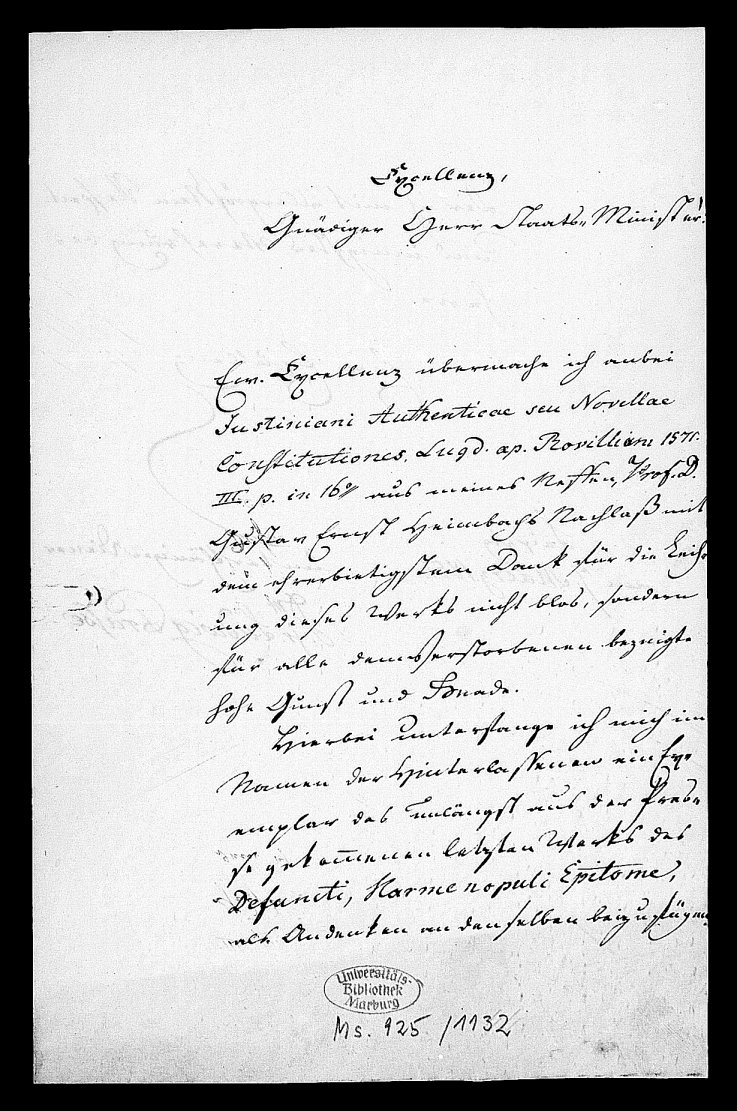 Excellenz,
Gnädiger Herr Staats-Minister!
Ew. Excellenz übermache ich anbei
Justiniani Authenticae seu Novellae
Constitutiones. Lugd. ap. Rovillium 1571.
III. p. in 16° aus meines Neffen, Prof. D.
Gustav Ernst Heimbachs Nachlaß mit
dem ehrerbietigstem Dank für die Leih-
ung dieses Werks nicht blos, sondern
für alle dem Verstorbenen bezeigte
hohe Gunst und Gnade.
Hierbei unterfange ich mich im
Namen der Hinterlassenen ein Ex-
emplar des unlängst aus der Pres-
se gekommenen letzten Werks des
Defuncti, Harmenopuli Epitome,
als Andenken an denselben beizufügen,
Universitäts-
Bibliothek
Marburg
Ms. 925/1132